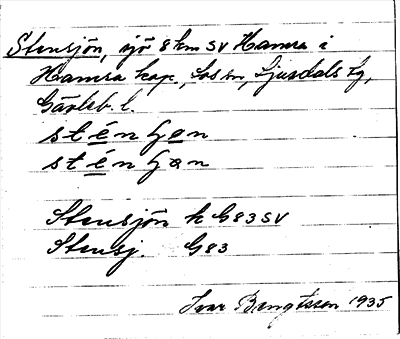 Stensjön, sjö 8 km SV Hamra i
Hamra kap., Los sn, Ljusdals tg,
Gävleb. l.
Stensjön k G83SV
Stensj. G83
Ivar Bengtsson 1935